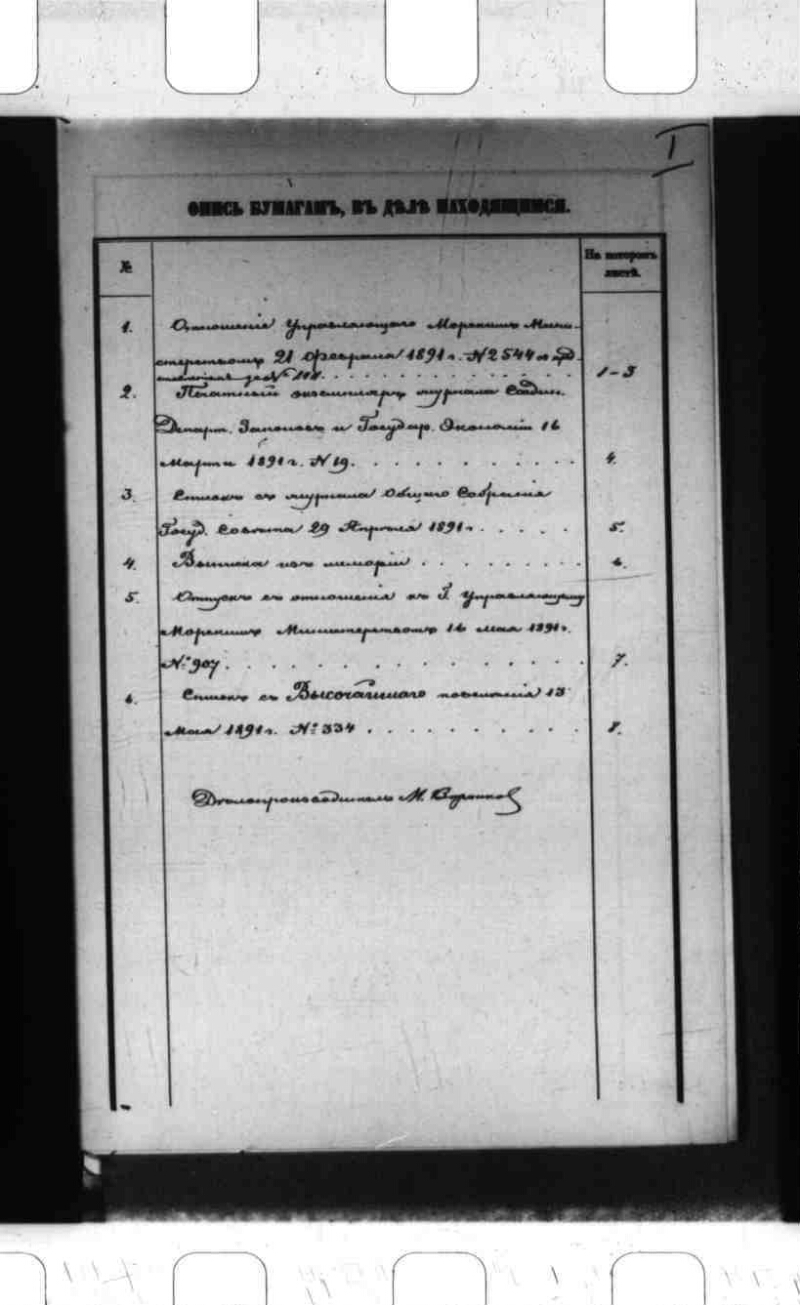 I
ОПИСЬ БУМАГАМЪ, ВЪ ДѢЛѢ НАХОДЯЩИМСЯ.
№
На которомъ
листѣ.
1. Отношеніе Управляющаго Морскимъ Мини-
стерствомъ 21 Февраля 1891 г. № 2544 и
1-3
2. Печатный экземпляръ журнала Соедин.
Департ. Законовъ и Государ. Экономіи 16
Марта 1891 г. № 19. 4.
3. Списокъ съ журнала Общаго Собранія
Госуд. Совѣта 29 Апрѣля 1891 г. 5.
4. Выписка изъ меморіи 6.
5. Отпускъ съ отношенія къ Г. Управляющему
Морскимъ Министерствомъ 16 мая 1891 г.
№ 907. 7.
6. Списокъ съ Высочайшаго повелѣнія 13
мая 1891 г. № 334 8.
Дѣлопроизводитель М.